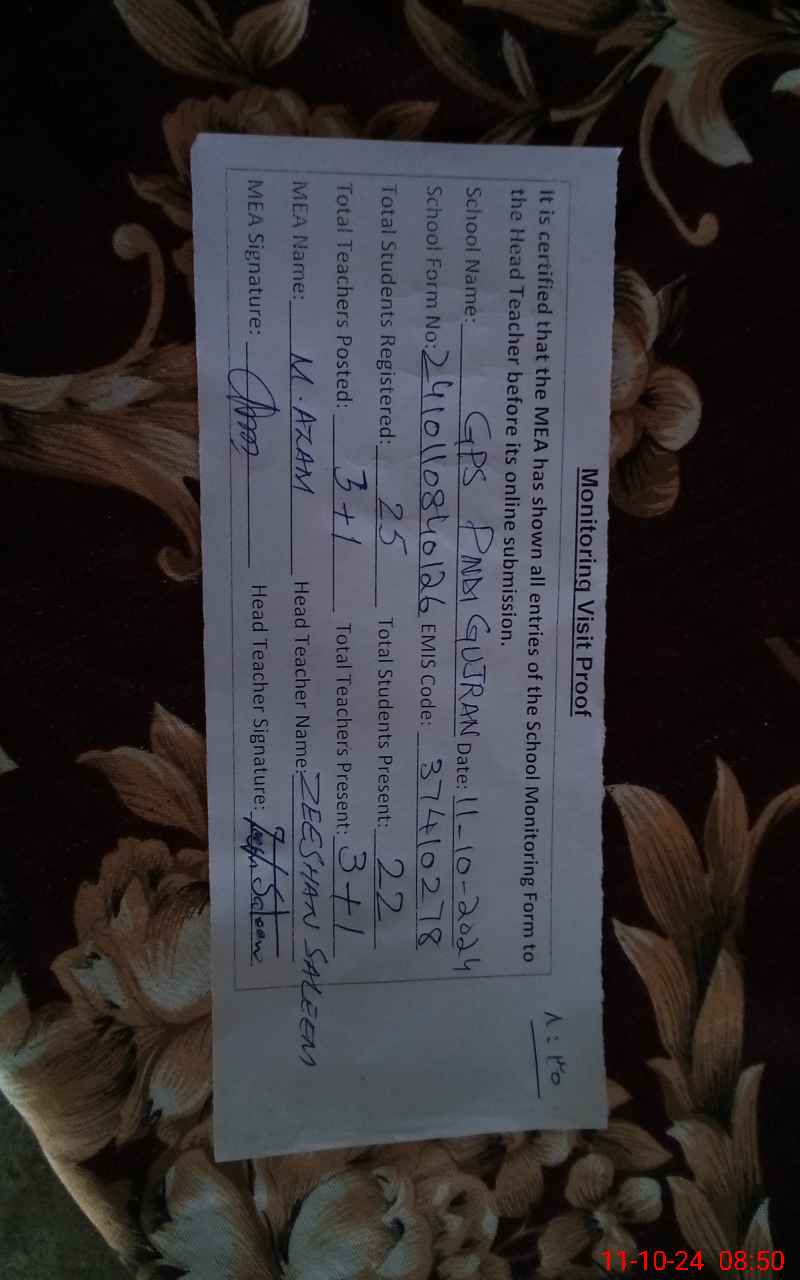 Monitoring Visit Proof
۸:۳۰
It is certified that the MEA has shown all entries of the School Monitoring Form to
the Head Teacher before its online submission.
School Name: GPS PNDI GUJRAN Date: 11-10-2024
School Form No: 2410110840126 EMIS Code: 37410278
Total Students Registered: 25 Total Students Present: 22
Total Teachers Posted: 3+1 Total Teachers Present: 3+1
MEA Name: M. AZAM Head Teacher Name: ZEESHAN SALEEM
MEA Signature: Head Teacher Signature: Saleem
11-10-24 08:50